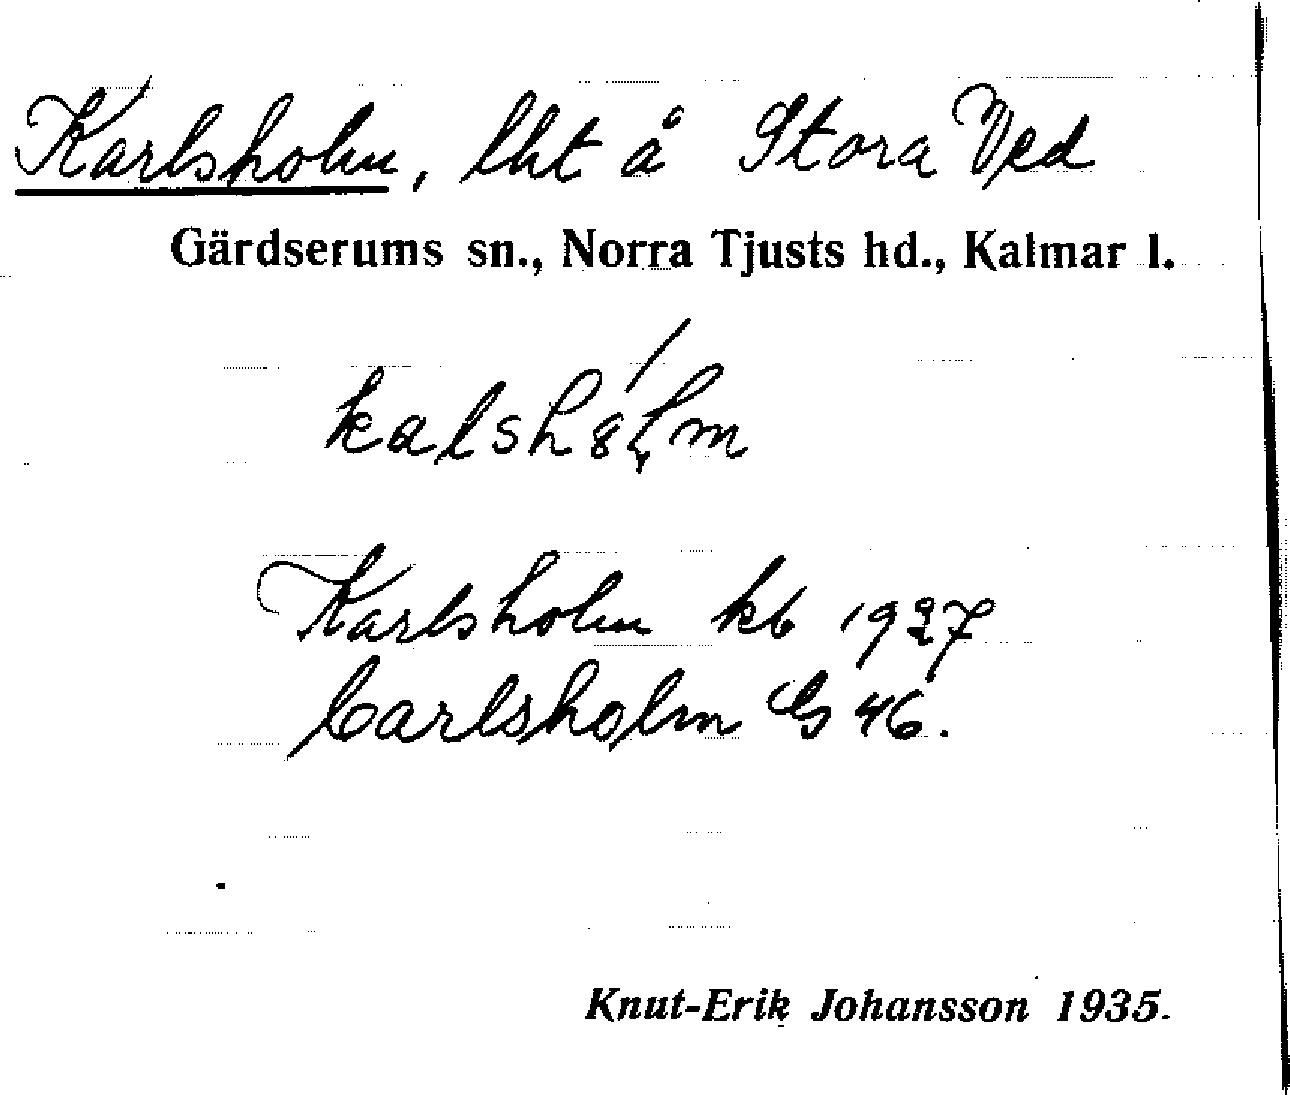 Karlsholm, lht å Stora Ved
Gärdserums sn., Norra Tjusts hd., Kalmar l.
Karlsholm kb 1927
Carlsholm G 46.
Knut-Erik Johansson 1935.